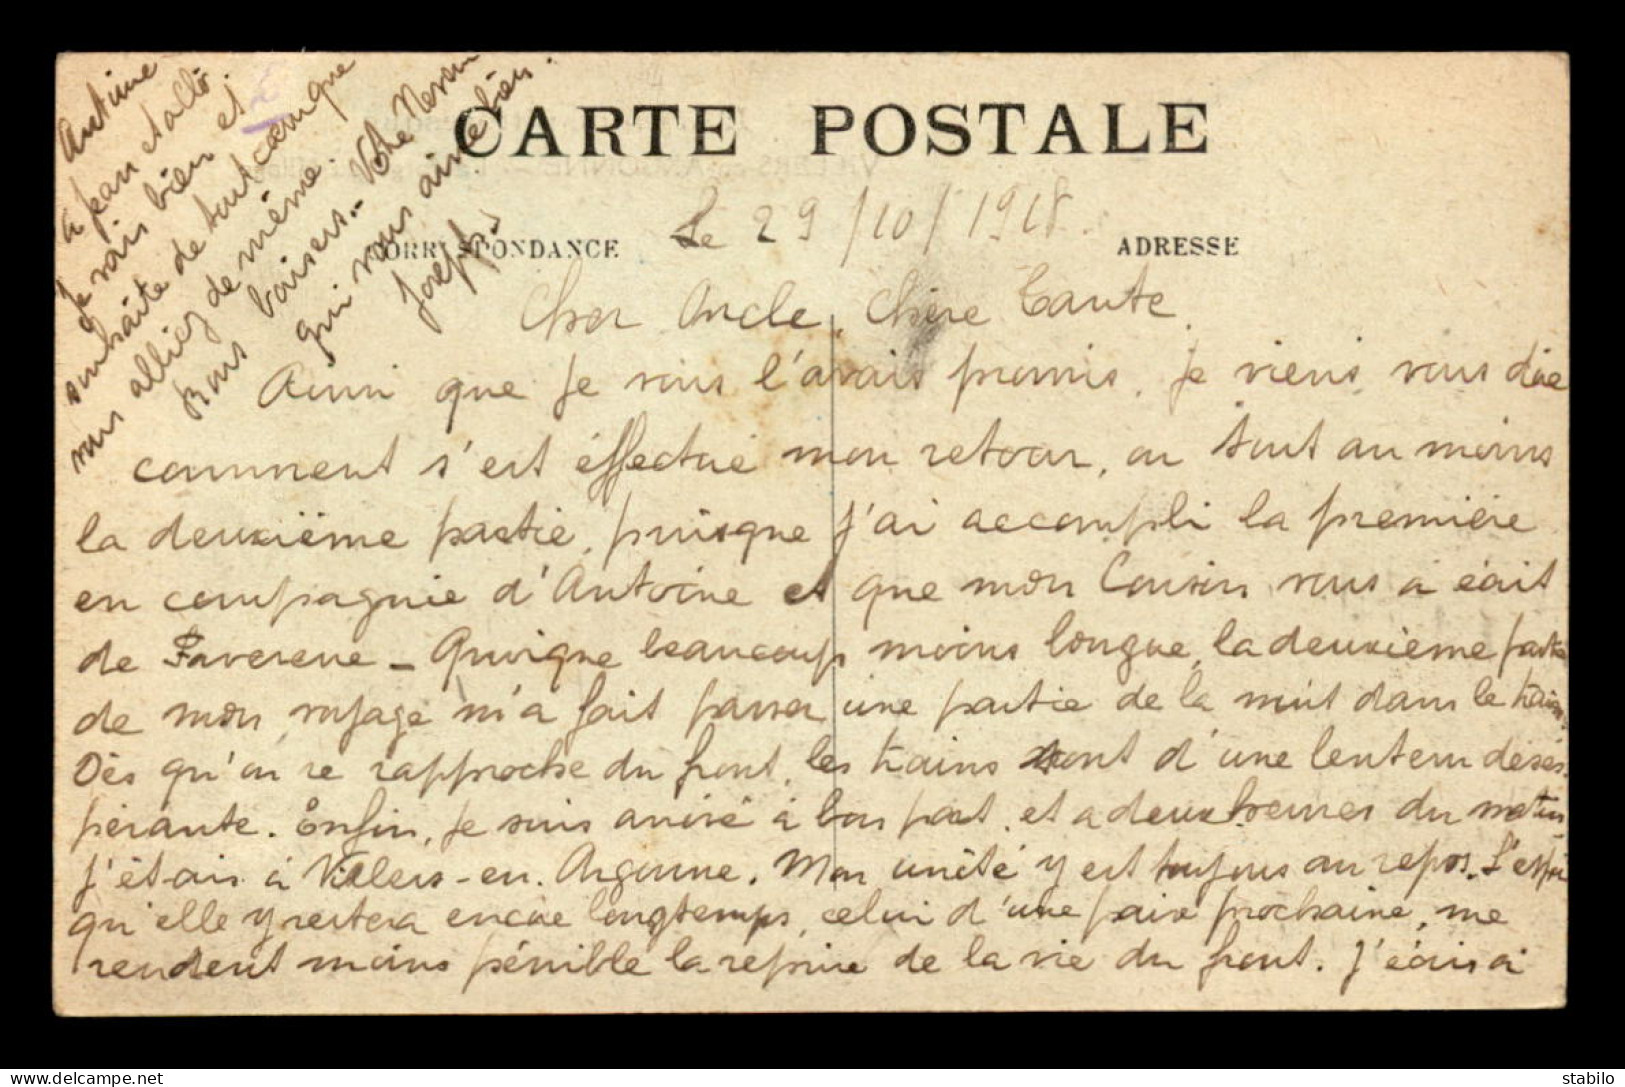 CARTE POSTALE
Le 29/10/1918.
CORRESPONDANCE
ADRESSE
Cher Oncle, Chère Tante,
Ainsi que je vous l'avais promis, je viens vous dire
comment s'est éffectué mon retour, ou tout au moins
la deuxième partie, puisque j'ai accompli la première
en compagnie d'Antoine et que mon Cousin vous a écrit
de Faverene - Quoique beaucoup moins longue, la deuxième partie
de mon voyage m'a fait passer une partie de la nuit dans le train.
Dès qu'on se rapproche du front, les trains sont d'une lenteur déses-
pérante. Enfin, je suis arrivé à bon port, et a deux heures du matin
j'étais à Villers-en-Argonne. Mon unité y est toujours au repos. L'espoir
qu'elle y restera encore longtemps, celui d'une paix prochaine, me
rendent moins pénible la reprise de la vie du front. J'écris à
Antoine
à Jean et
Je vais bien et
souhaite de tout cœur que
vous alliez de même.
Bons baisers. - Votre Neveu
qui vous aime bien.
Joseph.
stabilo